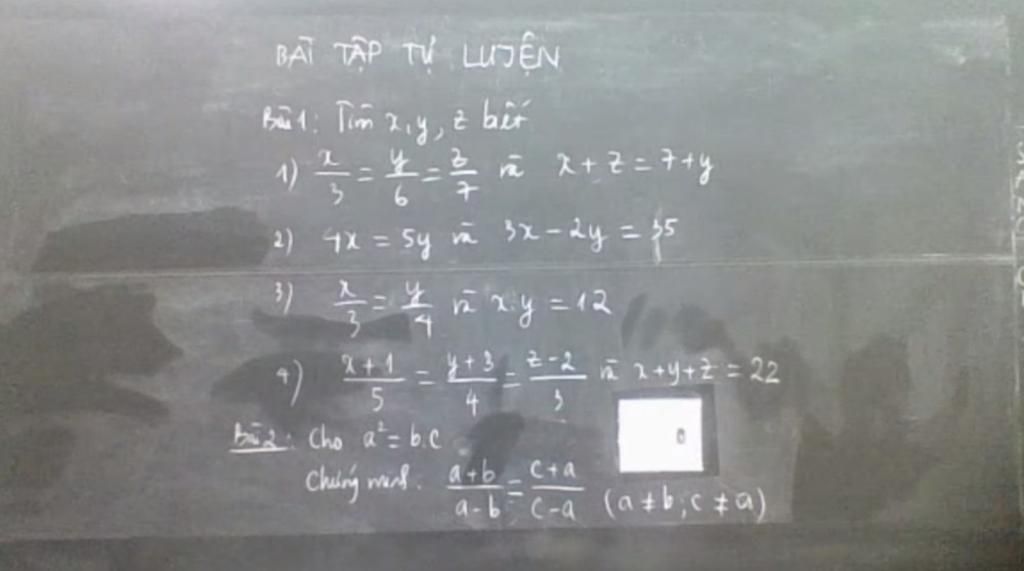 BÀI TẬP TỰ LUYỆN
Bài 1: Tìm x, y, z biết
1) x/3 = y/6 = z/7 và x + z = 7 + y
2) 4x = 5y và 3x - 2y = 35
3) x/3 = y/4 và x.y = 12
4) x+1/5 = y+3/4 = z-2/3 và x+y+z = 22
Bài 2: Cho a² = b.c
Chứng minh: a+b/a-b = c+a/c-a (a ≠ b; c ≠ a)